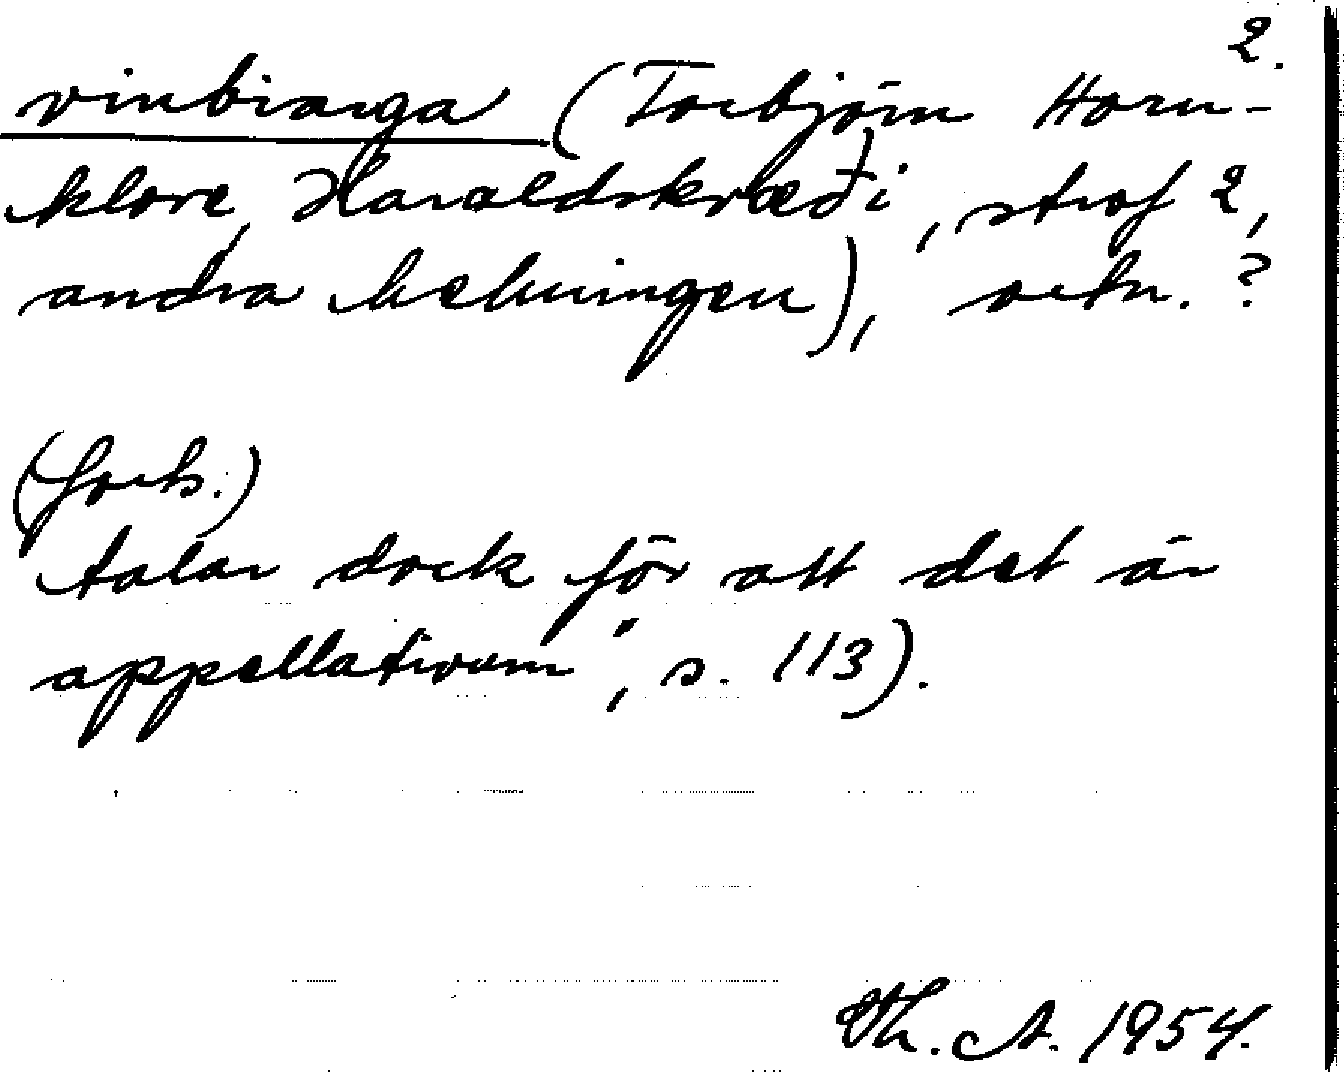 2.
vinbiarga (Torbjörn Horn-
klove, Haraldskvæði, strof 2,
andra helmingen), ortn. ?
(forts.)
talar dock för att det är
appellativum", s. 113).
Th. A. 1954.